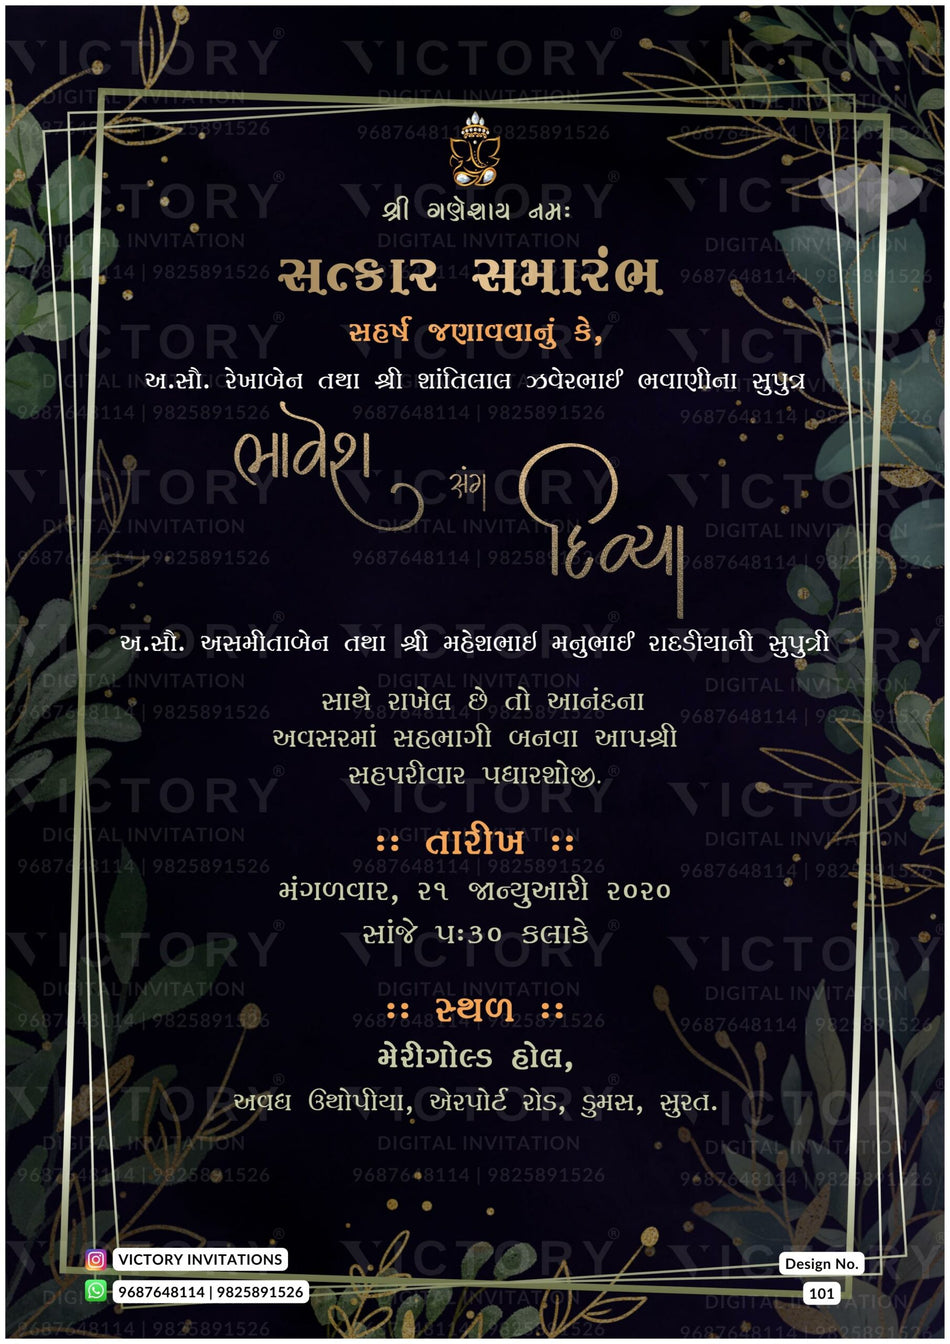 શ્રી ગણેશાય નમઃ
સત્કાર સમારંભ
સહર્ષ જણાવવાનું કે,
અ.સૌ. રેખાબેન તથા શ્રી શાંતિલાલ ઝવેરભાઈ ભવાણીના સુપુત્ર
ભાવેશ
સંગ
દિવ્યા
અ.સૌ. અસમીતાબેન તથા શ્રી મહેશભાઇ મનુભાઈ રાદડીયાની સુપુત્રી
સાથે રાખેલ છે તો આનંદના
અવસરમાં સહભાગી બનવા આપશ્રી
સહપરીવાર પધારશોજી.
:: તારીખ ::
મંગળવાર, ૨૧ જાન્યુઆરી ૨૦૨૦
સાંજે ૫:૩૦ કલાકે
:: સ્થળ ::
મેરીગોલ્ડ હોલ,
અવધ ઉથોપીયા, એરપોર્ટ રોડ, ડુમસ, સુરત.
VICTORY INVITATIONS
9687648114 | 9825891526
Design No.
101
VICTORY®
DIGITAL INVITATION
9687648114 | 9825891526